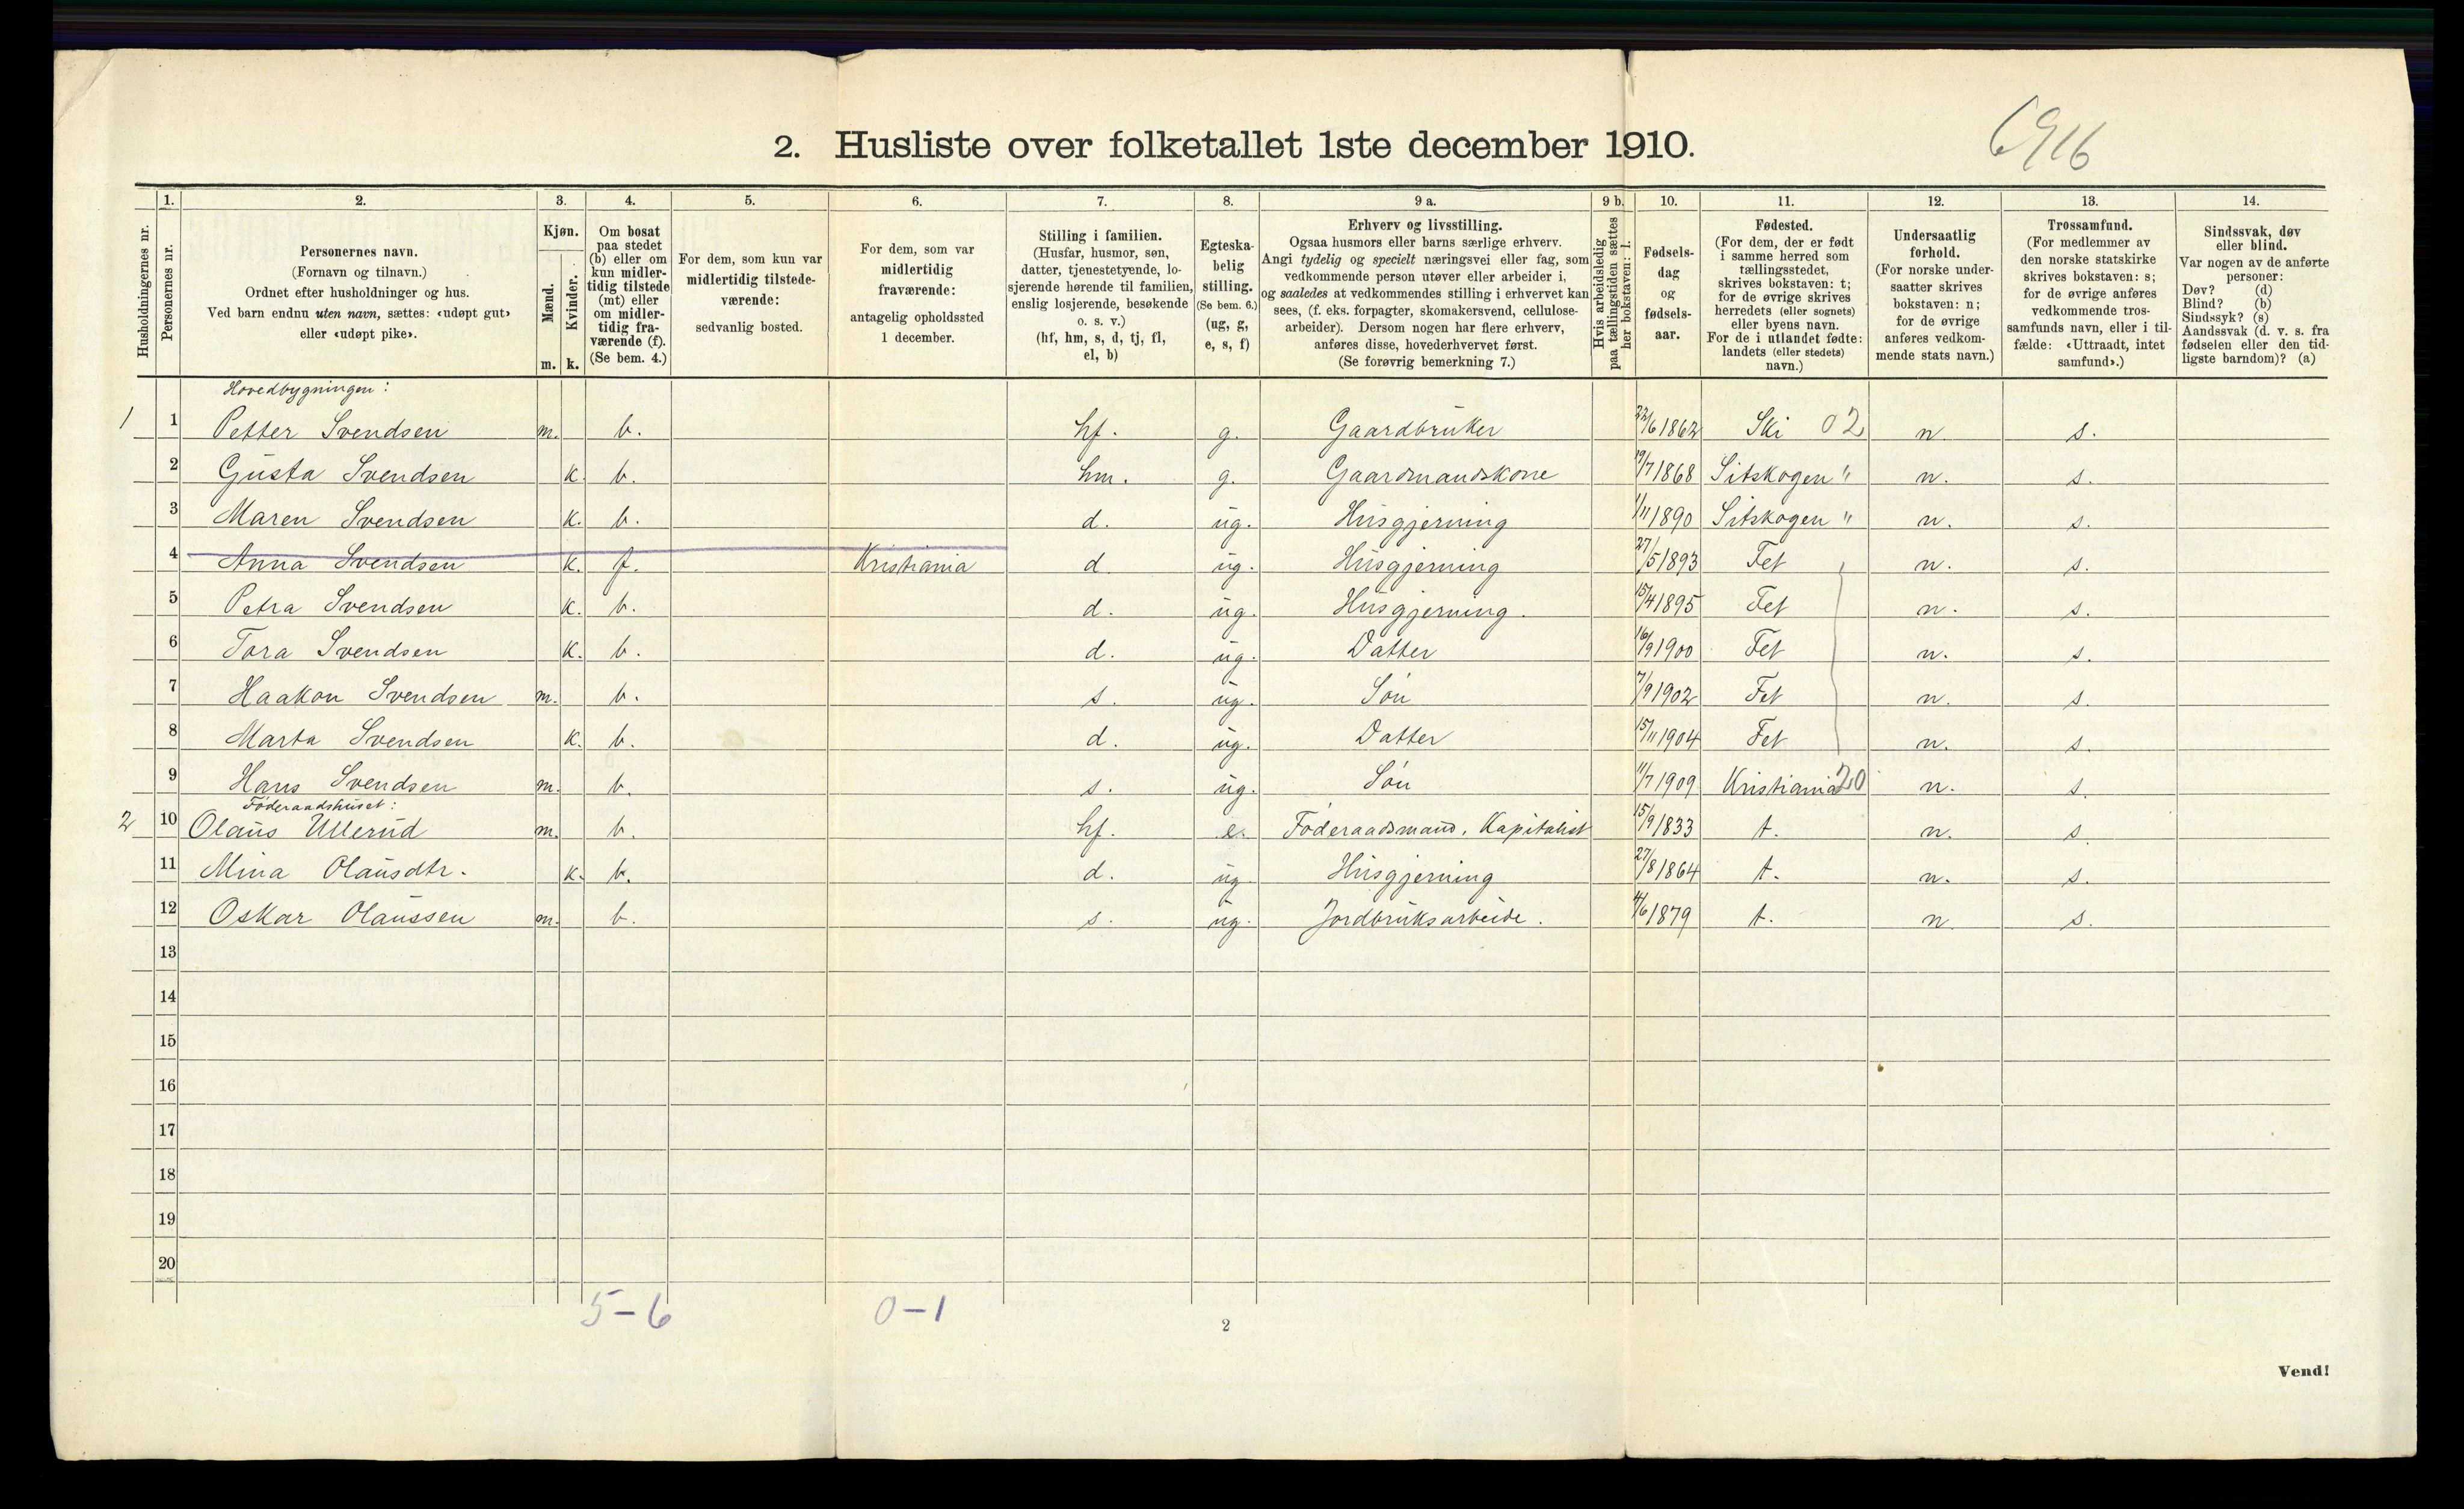 6916
2. Husliste over folketallet 1ste december 1910.
Husholdningernes nr.
1. Personernes nr.
2. Personernes navn.
(Fornavn og tilnavn.)
Ordnet efter husholdninger og hus.
Ved barn endnu uten navn, sættes: «udøpt gut»
eller «udøpt pike».
3. Kjøn.
Mænd. m.
Kvinder. k.
4. Om bosat
paa stedet
(b) eller om
kun midler-
tidig tilstede
(mt) eller
om midler-
tidig fra-
værende (f).
(Se bem. 4.)
5. For dem, som kun var
midlertidig tilstede-
værende:
sedvanlig bosted.
6. For dem, som var
midlertidig
fraværende:
antagelig opholdssted
1 december.
7. Stilling i familien.
(Husfar, husmor, søn,
datter, tjenestetyende, lo-
sjerende hørende til familien,
enslig losjerende, besøkende
o. s. v.)
(hf, hm, s, d, tj, fl,
el, b)
8. Egteska-
belig
stilling.
(Se bem. 6.)
(ug, g,
e, s, f)
9 a. Erhverv og livsstilling.
Ogsaa husmors eller barns særlige erhverv.
Angi tydelig og specielt næringsvei eller fag, som
vedkommende person utøver eller arbeider i,
og saaledes at vedkommendes stilling i erhvervet kan
sees, (f. eks. forpagter, skomakersvend, cellulose-
arbeider). Dersom nogen har flere erhverv,
anføres disse, hovederhvervet først.
(Se forøvrig bemerkning 7.)
9 b. Hvis arbeidsledig
paa tællingstiden sættes
her bokstaven: l.
10. Fødsels-
dag
og
fødsels-
aar.
11. Fødested.
(For dem, der er født
i samme herred som
tællingsstedet,
skrives bokstaven: t;
for de øvrige skrives
herredets (eller sognets)
eller byens navn.
For de i utlandet fødte:
landets (eller stedets)
navn.)
12. Undersaatlig
forhold.
(For norske under-
saatter skrives
bokstaven: n;
for de øvrige
anføres vedkom-
mende stats navn.)
13. Trossamfund.
(For medlemmer av
den norske statskirke
skrives bokstaven: s;
for de øvrige anføres
vedkommende tros-
samfunds navn, eller i til-
fælde: «Uttraadt, intet
samfund».)
14. Sindssvak, døv
eller blind.
Var nogen av de anførte
personer:
Døv? (d)
Blind? (b)
Sindssyk? (s)
Aandssvak (d. v. s. fra
fødselen eller den tid-
ligste barndom)? (a)
Hovedbygningen:
1 1 Petter Svendsen m. b. hf. g. Gaardbruker 22/6 1862 Ski 02 n. s.
2 Gusta Svendsen k. b. hm. g. Gaardmandskone 19/7 1868 Sitskogen " n. s.
3 Maren Svendsen k. b. d. ug. Husgjerning 1/11 1890 Sitskogen " n. s.
4 Anna Svendsen k. f. Kristiania d. ug. Husgjerning 27/5 1893 Fet n. s.
5 Petra Svendsen k. b. d. ug. Husgjerning. 15/4 1895 Fet n. s.
6 Tora Svendsen k. b. d. ug. Datter 16/9 1900 Fet n. s.
7 Haakon Svendsen m. b. s. ug. Søn 7/9 1902 Fet n. s.
8 Marta Svendsen k. b. d. ug. Datter 15/11 1904 Fet n. s.
9 Hans Svendsen m. b. s. ug. Søn 11/7 1909 Kristiania 20 n. s.
Føderaadshuset:
2 10 Olaus Ullerud m. b. hf. e. Føderaadsmand. Kapitalist 15/9 1833 t. n. s.
11 Mina Olausdtr. k. b. d. ug. Husgjerning 27/8 1864 t. n. s.
12 Oskar Olaussen m. b. s. ug. Jordbruksarbeide. 4/6 1879 t. n. s.
13
14
15
16
17
18
19
20
5-6 0-1
2
Vend!